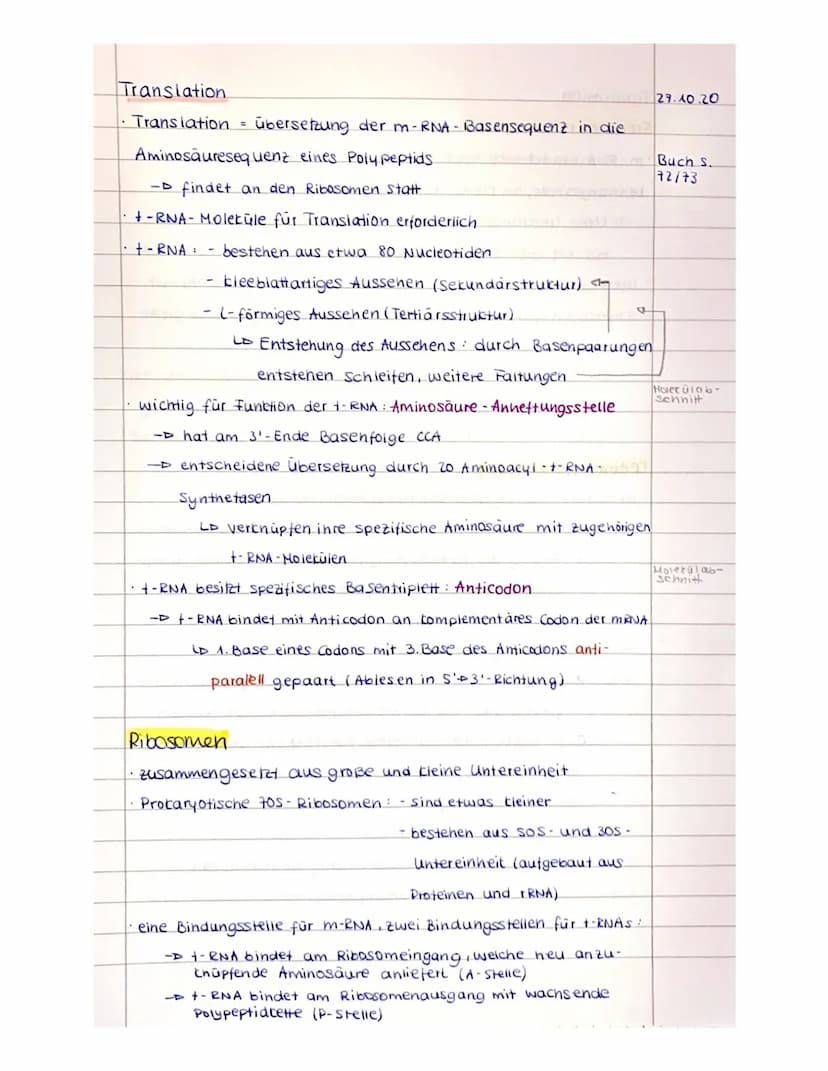 Translation
29.10.20
· Translation = Übersetzung der m-RNA-Basensequenz in die
Aminosäuresequenz eines Polypeptids
Buch S.
72/73
→ findet an den Ribosomen statt
· t-RNA-Moleküle für Translation erforderlich
· t-RNA : - bestehen aus etwa 80 Nucleotiden
- kleeblattartiges Aussehen (Sekundärstruktur)
- L-förmiges Aussehen (Tertiärsstruktur)
↳ Entstehung des Aussehens : durch Basenpaarungen
entstehen Schleifen, weitere Faltungen
· wichtig für Funktion der t-RNA : Aminosäure - Anheftungsstelle
Molekülab-
schnitt
→ hat am 3'-Ende Basenfolge CCA
→ entscheidene Übersetzung durch 20 Aminoacyl-t-RNA-
Synthetasen
↳ verknüpfen ihre spezifische Aminosäure mit zugehörigen
t-RNA-Molekülen
· t-RNA besitzt spezifisches Basentriplett : Anticodon
Molekülab-
schnitt
→ t-RNA bindet mit Anticodon an komplementäres Codon der mRNA
↳ 1. Base eines Codons mit 3. Base des Anticodons anti-
paralell gepaart (Ablesen in 5'→3'-Richtung)
Ribosomen
· zusammengesetzt aus große und kleine Untereinheit
· Prokaryotische 70S-Ribosomen : - sind etwas kleiner
- bestehen aus 50S- und 30S-
Untereinheit (aufgebaut aus
Proteinen und rRNA)
· eine Bindungsstelle für m-RNA, zwei Bindungsstellen für t-RNAs :
→ t-RNA bindet am Ribosomeingang, welche neu anzu-
knüpfende Aminosäure anliefert (A-Stelle)
→ t-RNA bindet am Ribosomenausgang mit wachsende
Polypeptidkette (P-Stelle)